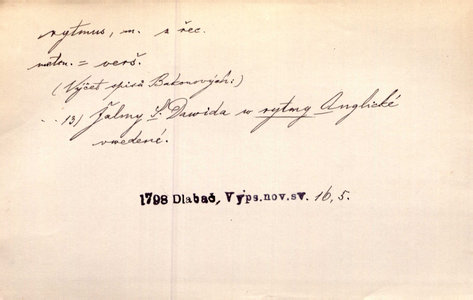 rytmus, m. z řec.
meton. = verš.
(Výčet spisů Bakonových:)
..13) Žalmy S. Dawida w rytmy Anglické
uwedené.
1798 Dlabač, Vyps.nov.sv. 16, 5.